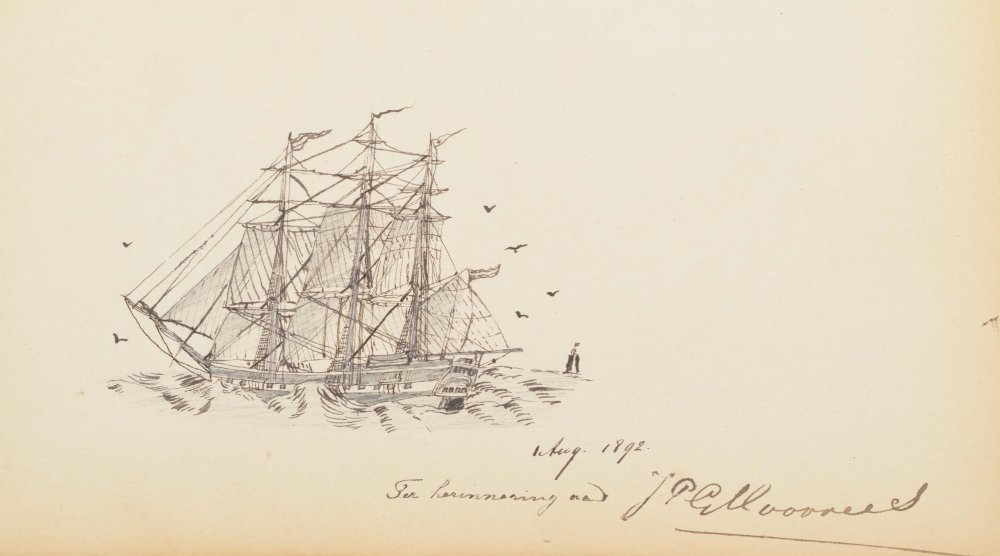 1 Aug. 1892.
Ter herinnering aan J P G Moorrees